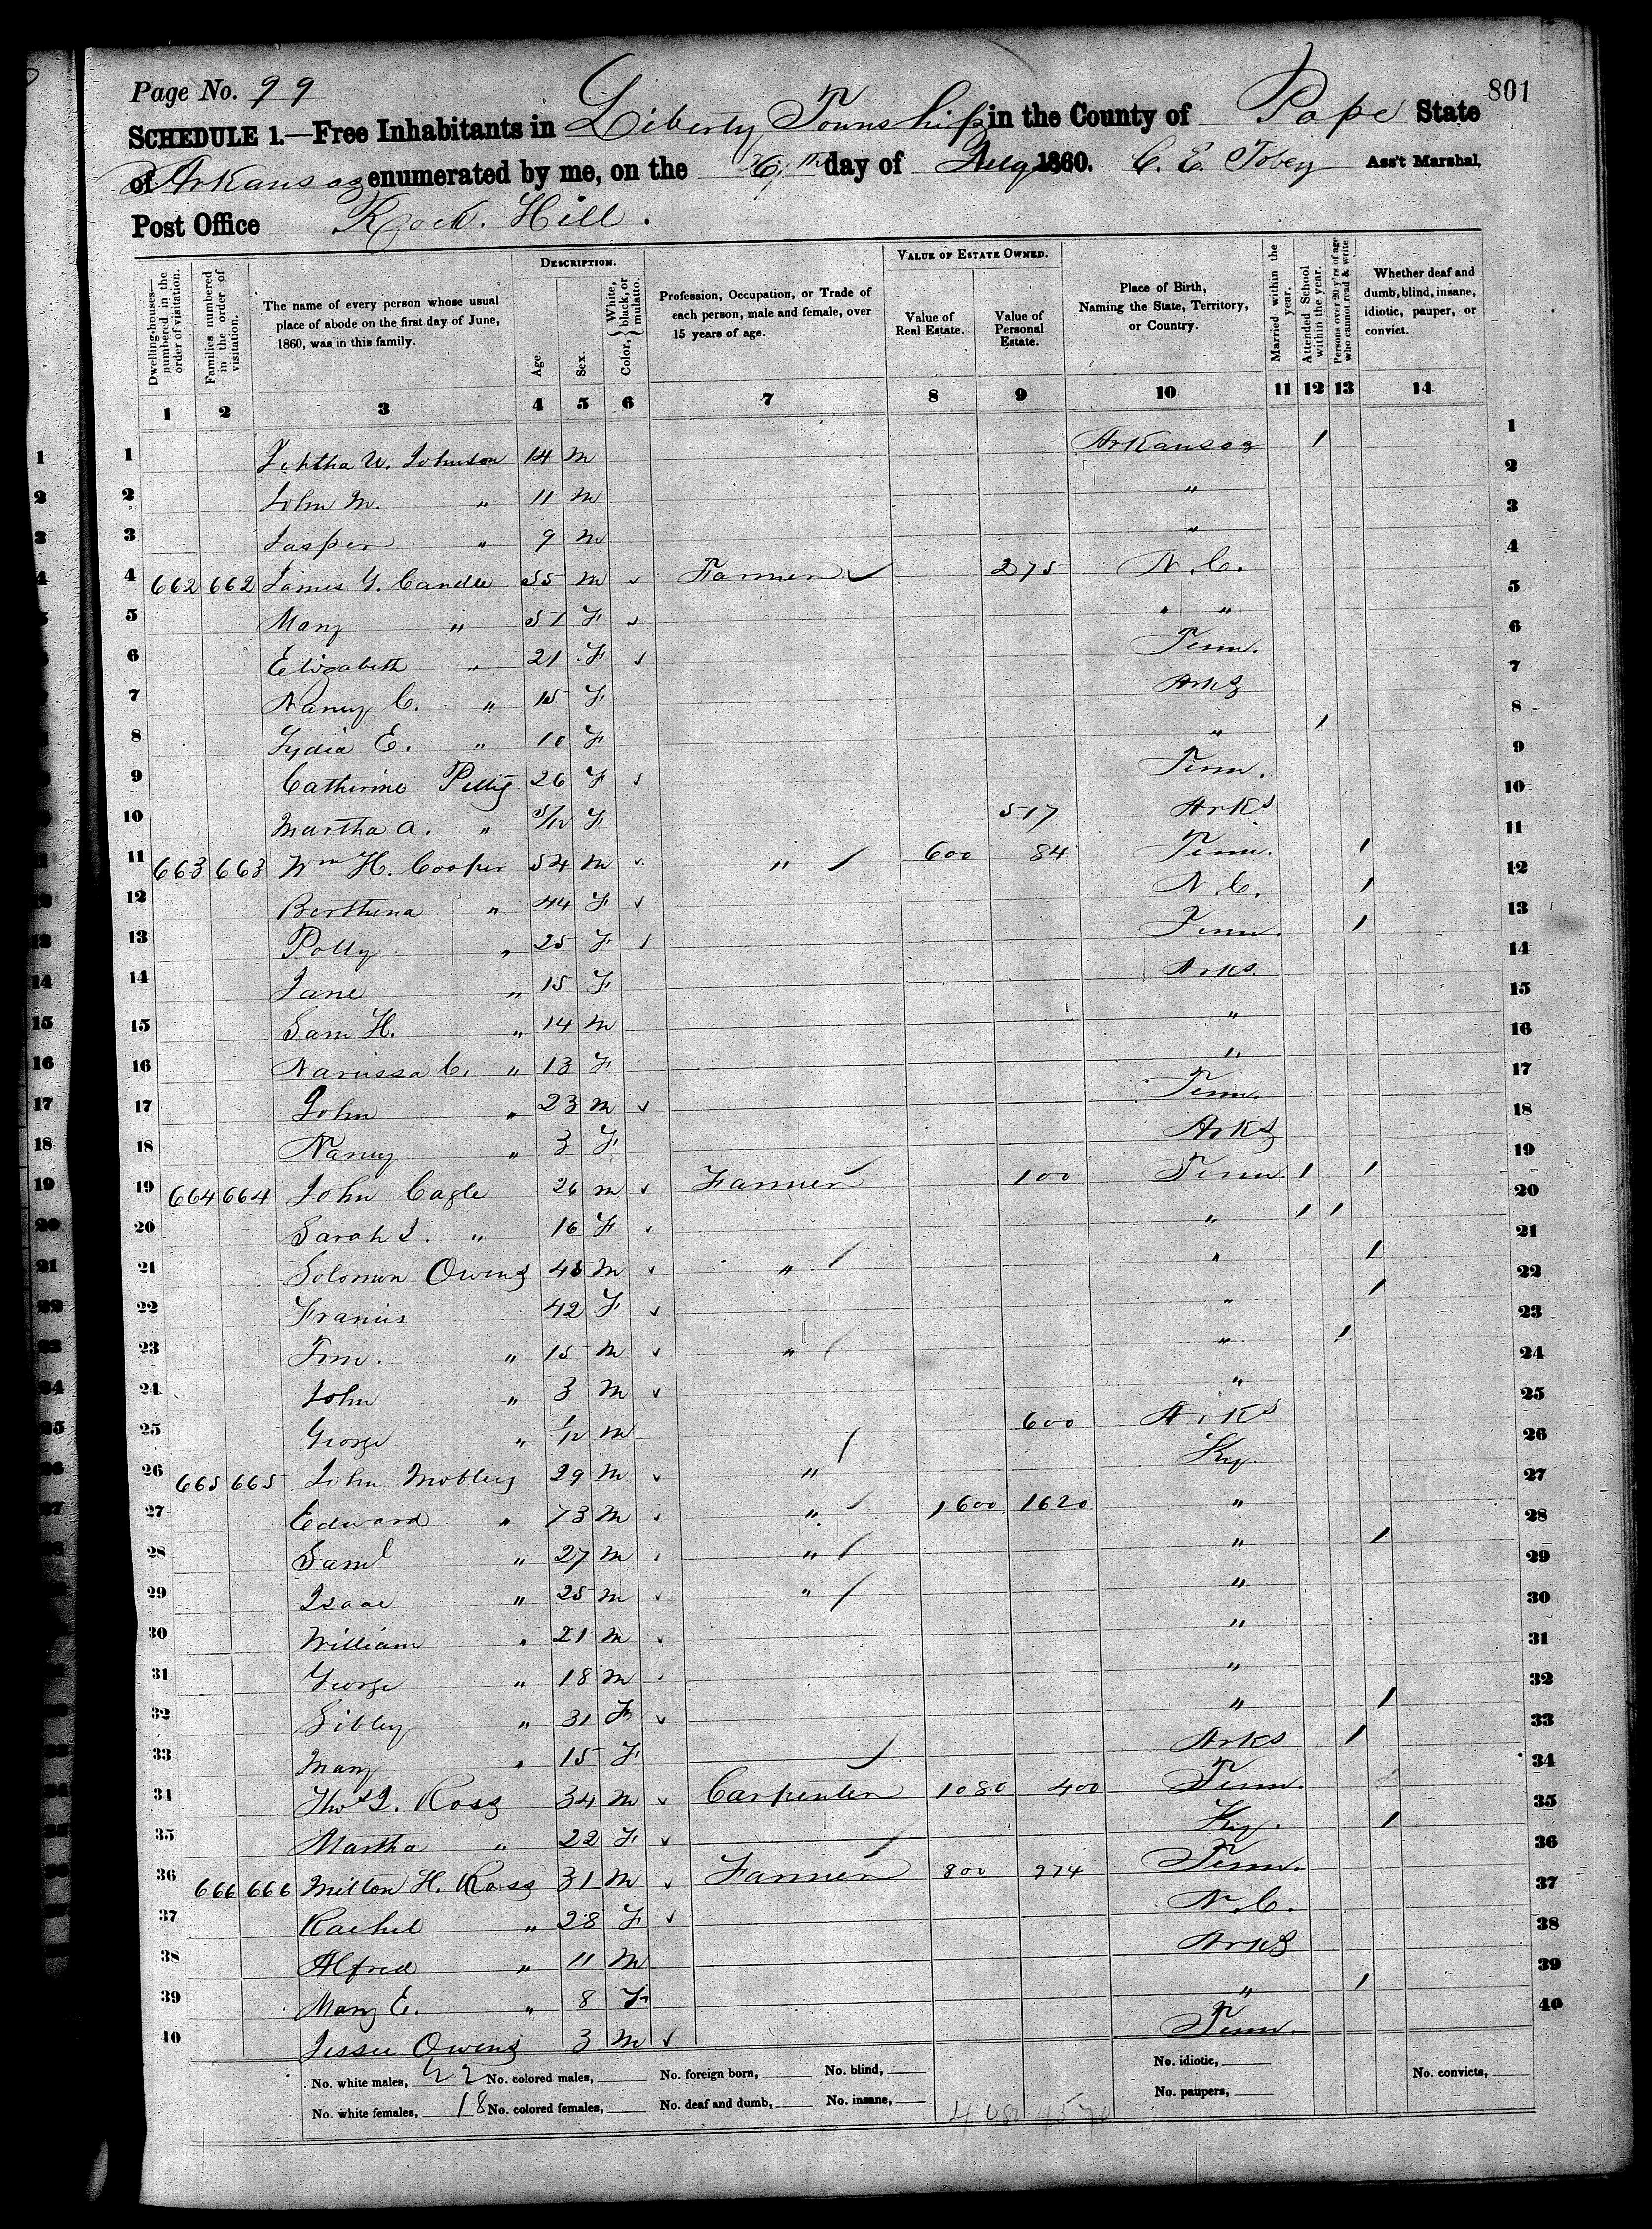 Page No. 99
801
SCHEDULE 1.—Free Inhabitants in Liberty Township in the County of Pope State
of Arkansas enumerated by me, on the 6th day of Aug 1860. C. E. Tobey Ass't Marshal,
Post Office Rock Hill.
Dwelling-houses—numbered in the order of visitation.
Families numbered in the order of visitation.
The name of every person whose usual place of abode on the first day of June, 1860, was in this family.
DESCRIPTION.
Age.
Sex.
Color, { White, black, or mulatto.
Profession, Occupation, or Trade of each person, male and female, over 15 years of age.
VALUE OF ESTATE OWNED.
Value of Real Estate.
Value of Personal Estate.
Place of Birth, Naming the State, Territory, or Country.
Married within the year.
Attended School within the year.
Persons over 20 y'rs of age who cannot read & write.
Whether deaf and dumb, blind, insane, idiotic, pauper, or convict.
1 2 3 4 5 6 7 8 9 10 11 12 13 14
1 W. Johnson 14 m Arkansas / 1
2 John M. " 11 m " 2
3 Jasper " 9 m " 3
4 662 662 James Y. Candle 55 m Farmer 275 N. C. 4
5 Mary " 51 F " " 5
6 Elizabeth " 21 F Tenn. 6
7 Nancy C. " 15 F Arks 7
8 Lydia E. " 10 F " / 8
9 Catherine 26 F Tenn. 9
10 Martha A. " 5/12 F 517 Arks 10
11 663 663 Wm H. Cooper 54 m " 600 84 Tenn. / 11
12 Berthena " 44 F N. C. / 12
13 Polly " 25 F Tenn. / 13
14 Jane " 15 F Arks. 14
15 Sam H. " 14 m " 15
16 Narissa C. " 13 F " 16
17 John " 23 m Tenn. 17
18 Nancy " 3 F Arks 18
19 664 664 John Cagle 26 m Farmer 100 Tenn. / / 19
20 Sarah J. " 16 F " / / 20
21 Solomon Owens 45 m " " / 21
22 Francis 42 F " / 22
23 " 15 m " " / 23
24 John " 3 m " 24
25 George " 1/12 m 600 Arks 25
26 665 665 John Mobley 29 m " Ky. 26
27 Edward " 73 m " 1600 1620 " 27
28 Saml " 27 m " " / 28
29 Isaac " 25 m " " 29
30 William " 21 m " 30
31 George " 18 m " 31
32 Sibley " 31 F " / 32
33 Mary " 15 F Arks / 33
34 Thos J. Ross 34 m Carpenter 1080 400 Tenn. 34
35 Martha " 22 F Ky. / 35
36 666 666 Milton H. Ross 31 m Farmer 800 974 Tenn. 36
37 Rachel " 28 F N. C. 37
38 Alfred " 11 m Arks 38
39 Mary E. " 8 F " / 39
40 Jesse Owens 3 m Tenn. 40
No. white males, 22 No. colored males, No. foreign born, No. blind, No. idiotic, No. convicts,
No. white females, 18 No. colored females, No. deaf and dumb, No. insane, 4080 4570 No. paupers,